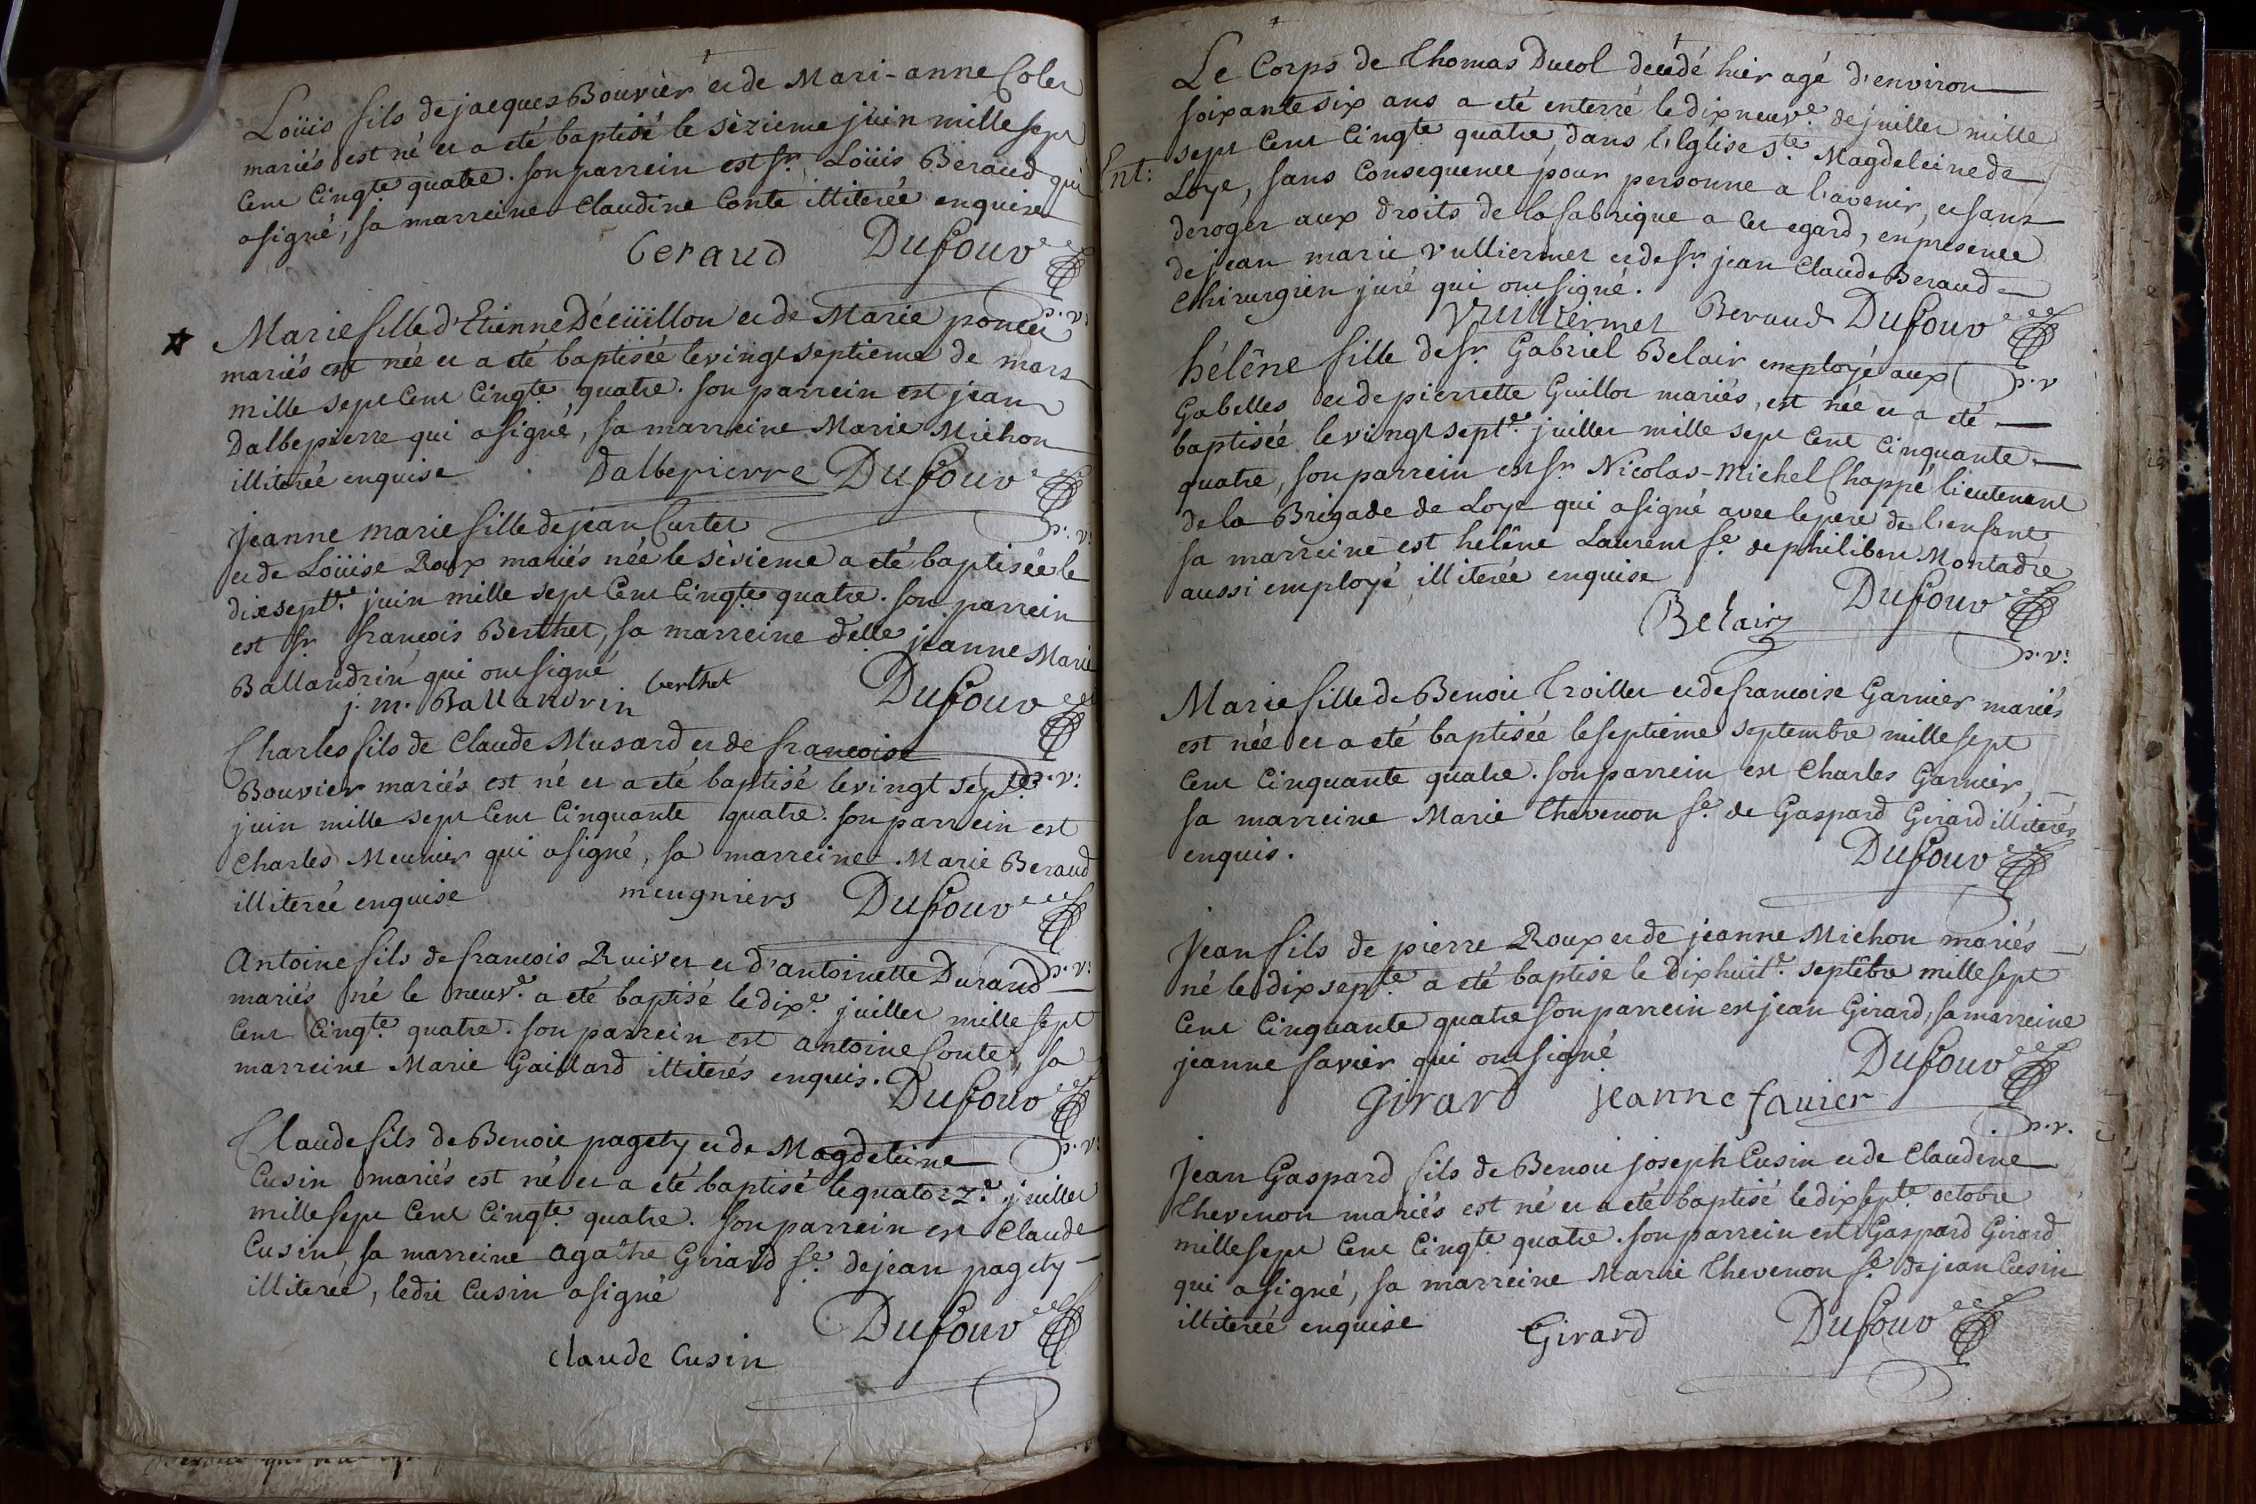 Loüis fils de jacques Bouvier et de Mari-anne Colet
mariés est né et a eté baptisé le sèzieme jüin mille sept
Cent Cinqte quatre. son parrein est sr. Loüis Beraud qui
a signé, sa marreine Claudine Conte illiterée enquise
beraud Dufour
p.r.
Marie fille d'Etienne Décüillon et de Marie poncet
mariés est née et a eté baptisée le vingt septieme de mars
mille sept Cent Cinqte quatre. son parrein est jean
Dalbepierre qui a signé, sa marreine Marie Michon
illiterée enquise Dalbepierre Dufour
p.r.
jeanne marie fille de jean Curtet
et de Loüise Roux mariés née le sèzieme a eté baptisée le
dix septe. juin mille sept Cent Cinqte quatre. son parrein
est sr françois Berthet, sa marreine delle jeanne Marie
Ballandrin qui ont signé
j. m. Ballandrin berthet Dufour
Charles fils de Claude Musard et de françoise
p.r.
Bouvier mariés est né et a eté baptisé le vingt septe.
juin mille sept Cent Cinquante quatre. son parrein est
Charles Meunier qui a signé, sa marreine Marie Beraud
illiterée enquise meugniers Dufour
p.r.
Antoine fils de françois Ruivet et d'antoinette Durand
mariés né le neuve. a eté baptisé le dixe. juillet mille sept
Cent Cinqte quatre. son parrein est antoine Conte, sa
marreine Marie Gaillard illiterés enquis. Dufour
p.r.
Claude fils de Benoit pagety et de Magdeleine
Cusin mariés est né et a eté baptisé le quatorze. juillet
mille sept Cent Cinqte quatre. son parrein est Claude
Cusin, sa marreine agathe Girard fe. de jean pagety
illiterée, ledit Cusin a signé
Dufour
claude Cusin
Le Corps de Thomas Ducol decedé hier agé d'environ
soixante six ans a eté enterré le dix neuve. de juillet mille
Ent: sept Cent Cinqte quatre, dans l'Eglise Ste. Magdeleine de
Loye, sans Consequence pour personne a l'avenir, et sans
deroger aux droits de la fabrique a cet egard, en presence
de jean marie vulliermet et de sr jean Claude Beraud
Chirurgien juré qui ont signé.
vuilliermet Beraud Dufour
p.r.
hélêne fille de sr Gabriel Belair employé aux
Gabelles et de pierrette Guillot mariés, est née et a eté
baptisée le vingt septe. juillet mille sept Cent Cinquante
quatre, son parrein est sr Nicolas-Michel Chappé lieutenent
de la Brigade de Loye qui a signé avec le pere de l'enfent
sa marreine est helêne Laurent fe. de philibert Montadre
aussi employé, illiterée enquise
Belair Dufour
p.r.
Marie fille de Benoit Troillet et de françoise Garnier mariés
est née et a eté baptisée le septieme septembre mille sept
Cent Cinquante quatre. son parrein est Charles Garnier,
sa marreine Marie Thevenon fe. de Gaspard Girard illiterés
enquis.
Dufour
jean fils de pierre Roux et de jeanne Michon mariés
né le dix septe. a eté baptisé le dix huite. septêbre mille sept
Cent Cinquante quatre son parrein est jean Girard, sa marreine
jeanne favier qui ont signé
Girard jeanne favier Dufour
p.r.
jean Gaspard fils de Benoit joseph Cusin et de Claudine
Thevenon mariés est né et a eté baptisé le dix septe. octobre
mille sept Cent Cinqte quatre. son parrein est Gaspard Girard
qui a signé, sa marreine Marie Thevenon fe. de jean Cusin
illiterée enquise
Girard Dufour